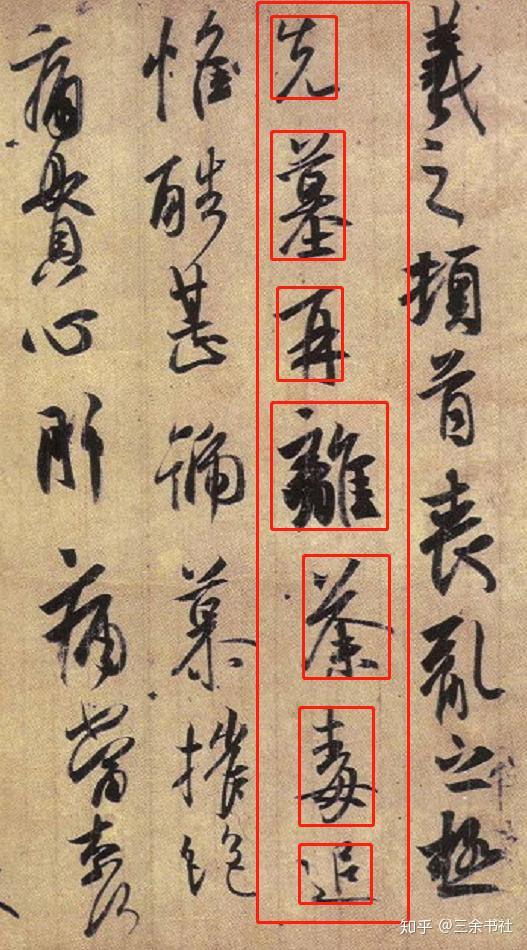 羲之頓首喪亂之極
先墓再離荼毒追
惟酷甚號慕摧絕
痛貫心肝痛當奈何
知乎 @三余书社